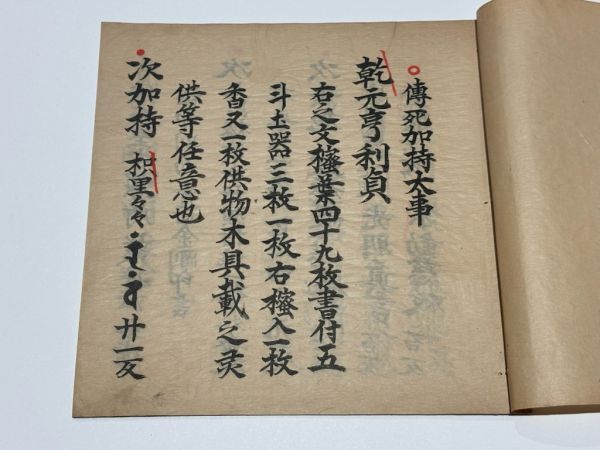 傳死加持大事
乾元亨利貞
右之文樒葉四十九枚書付五
斗土器三枚一枚右樒入一枚
香又一枚供物木具載之
供等任意也
次加持 枳里々々 廿一反